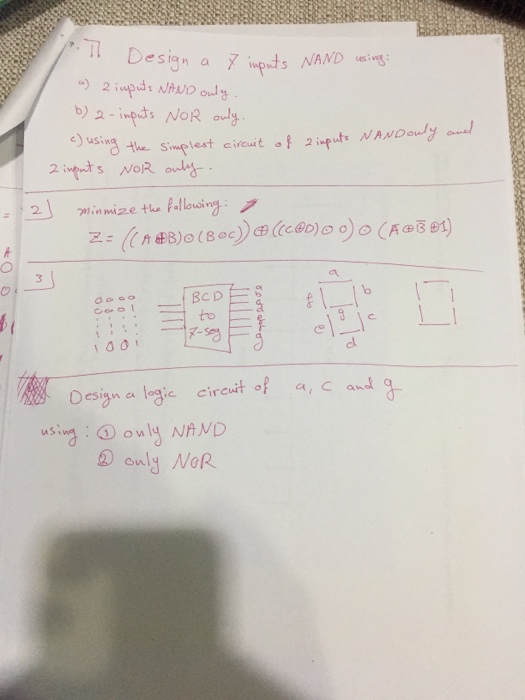 1] Design a 7 inputs NAND using:
a) 2 inputs NAND only.
b) 2-inputs NOR only.
c) using the simplest circuit of 2 inputs NAND only and
2 inputs NOR only.
2] minmize the following:
Z = ((A⊕B)⊙(B⊙C))⊕((C⊕D)⊙0)⊙(A⊕B̅⊕1)
3]
0000
0001
1001
BCD
to
7-seg
a
b
c
d
e
f
g
a
f
b
g
e
c
d
Design a logic circuit of a, c and g
using: ① only NAND
② only NOR